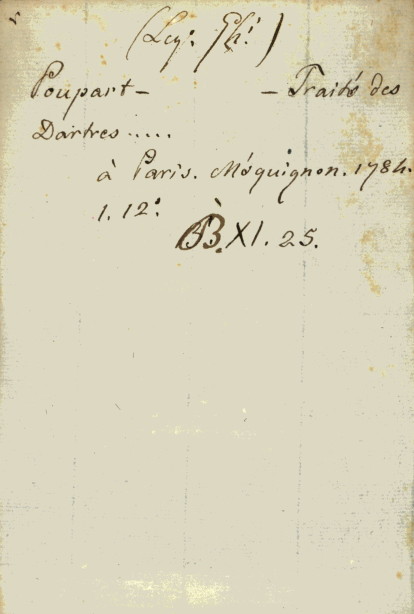 Poupart - - Traité des
Dartres .....
à Paris. Méquignon. 1784.
1. 12º
BB. XI. 25.